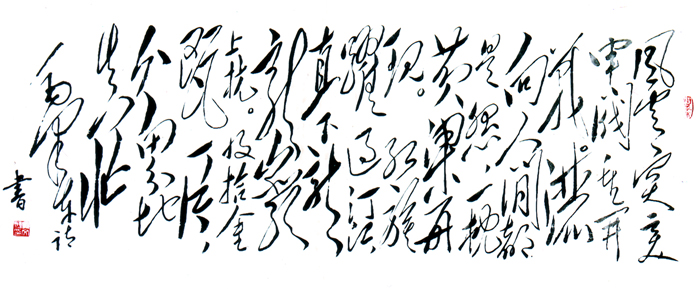 风云突变
军阀重开
战。洒
向人间都
是怨一枕
黄粱再
现。红旗
躍过汀江
直下龙
岩
上杭。收拾金
瓯一片
分田分地
真忙
毛泽东词
書